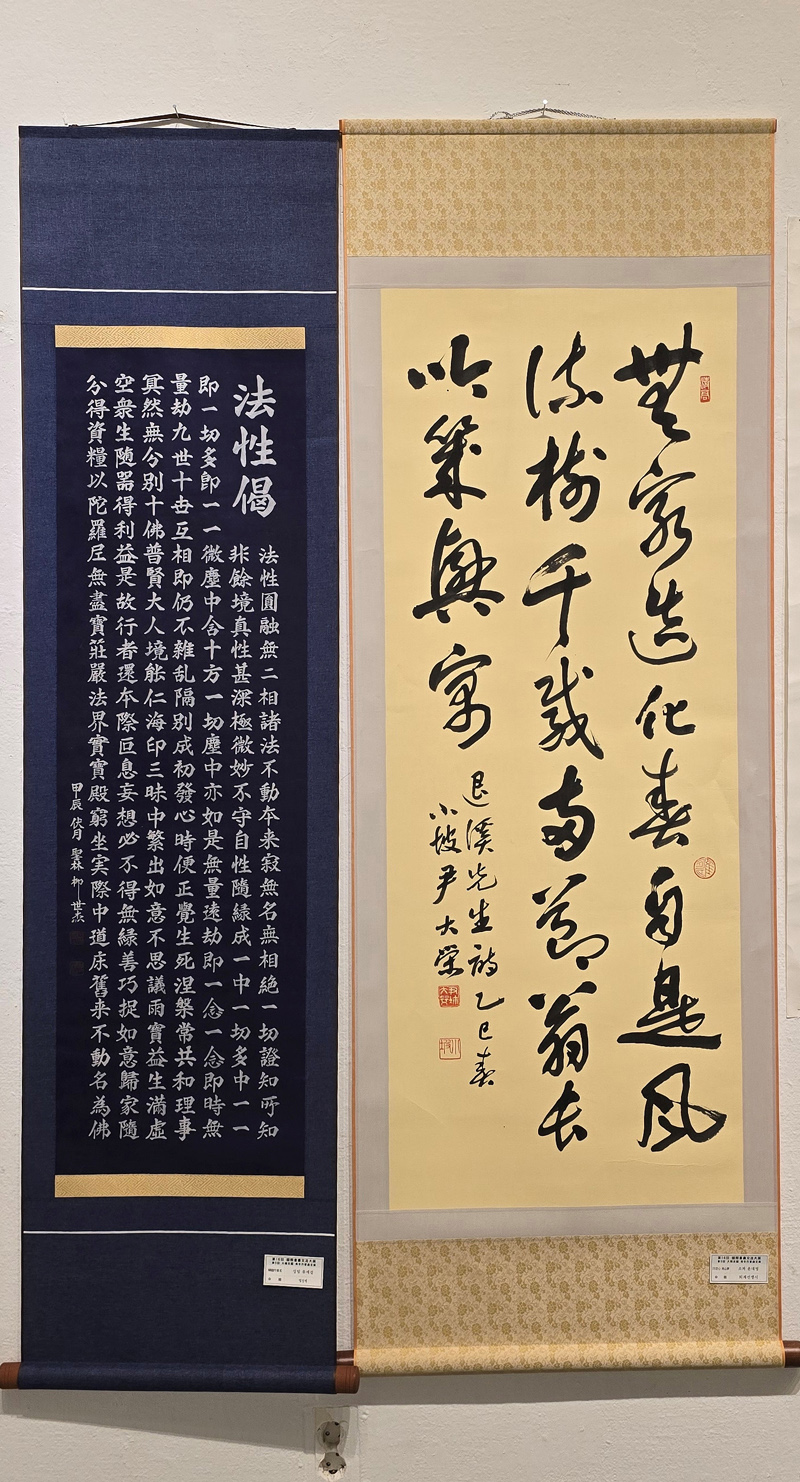 無窮造化春自是風
流樹千載両節翁長
吟策興寓
退溪先生詩 乙巳春
小坡 尹大榮
法性偈
法性圓融無二相諸法不動本来寂無名無相絶一切證知所知
非餘境真性甚深極微妙不守自性隨緣成一中一切多中一一
即一切多即一一微塵中含十方一切塵中亦如是無量遠劫即一念一念即時無
量劫九世十世互相即仍不雜乱隔別成初發心時便正覺生死涅槃常共和理事
冥然無分別十佛普賢大人境能仁海印三昧中繁出如意不思議雨寶益生滿虛
空衆生随器得利益是故行者還本際叵息妄想必不得無緣善巧捉如意歸家隨
分得資糧以陀羅尼無盡寶莊嚴法界實寶殿窮坐实際中道床舊来不動名為佛
甲辰 伏月 聖林 柳世杰